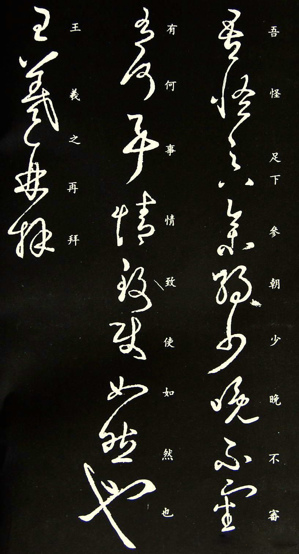 吾怪足下參朝少晚不審
有何事情致使如然也
王羲之再拜